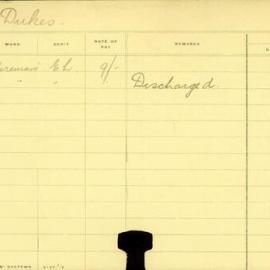 Dukes.
WORK DEP'T RATE OF PAY REMARKS
Fireman's Ch. 9/-
" "
Discharged.